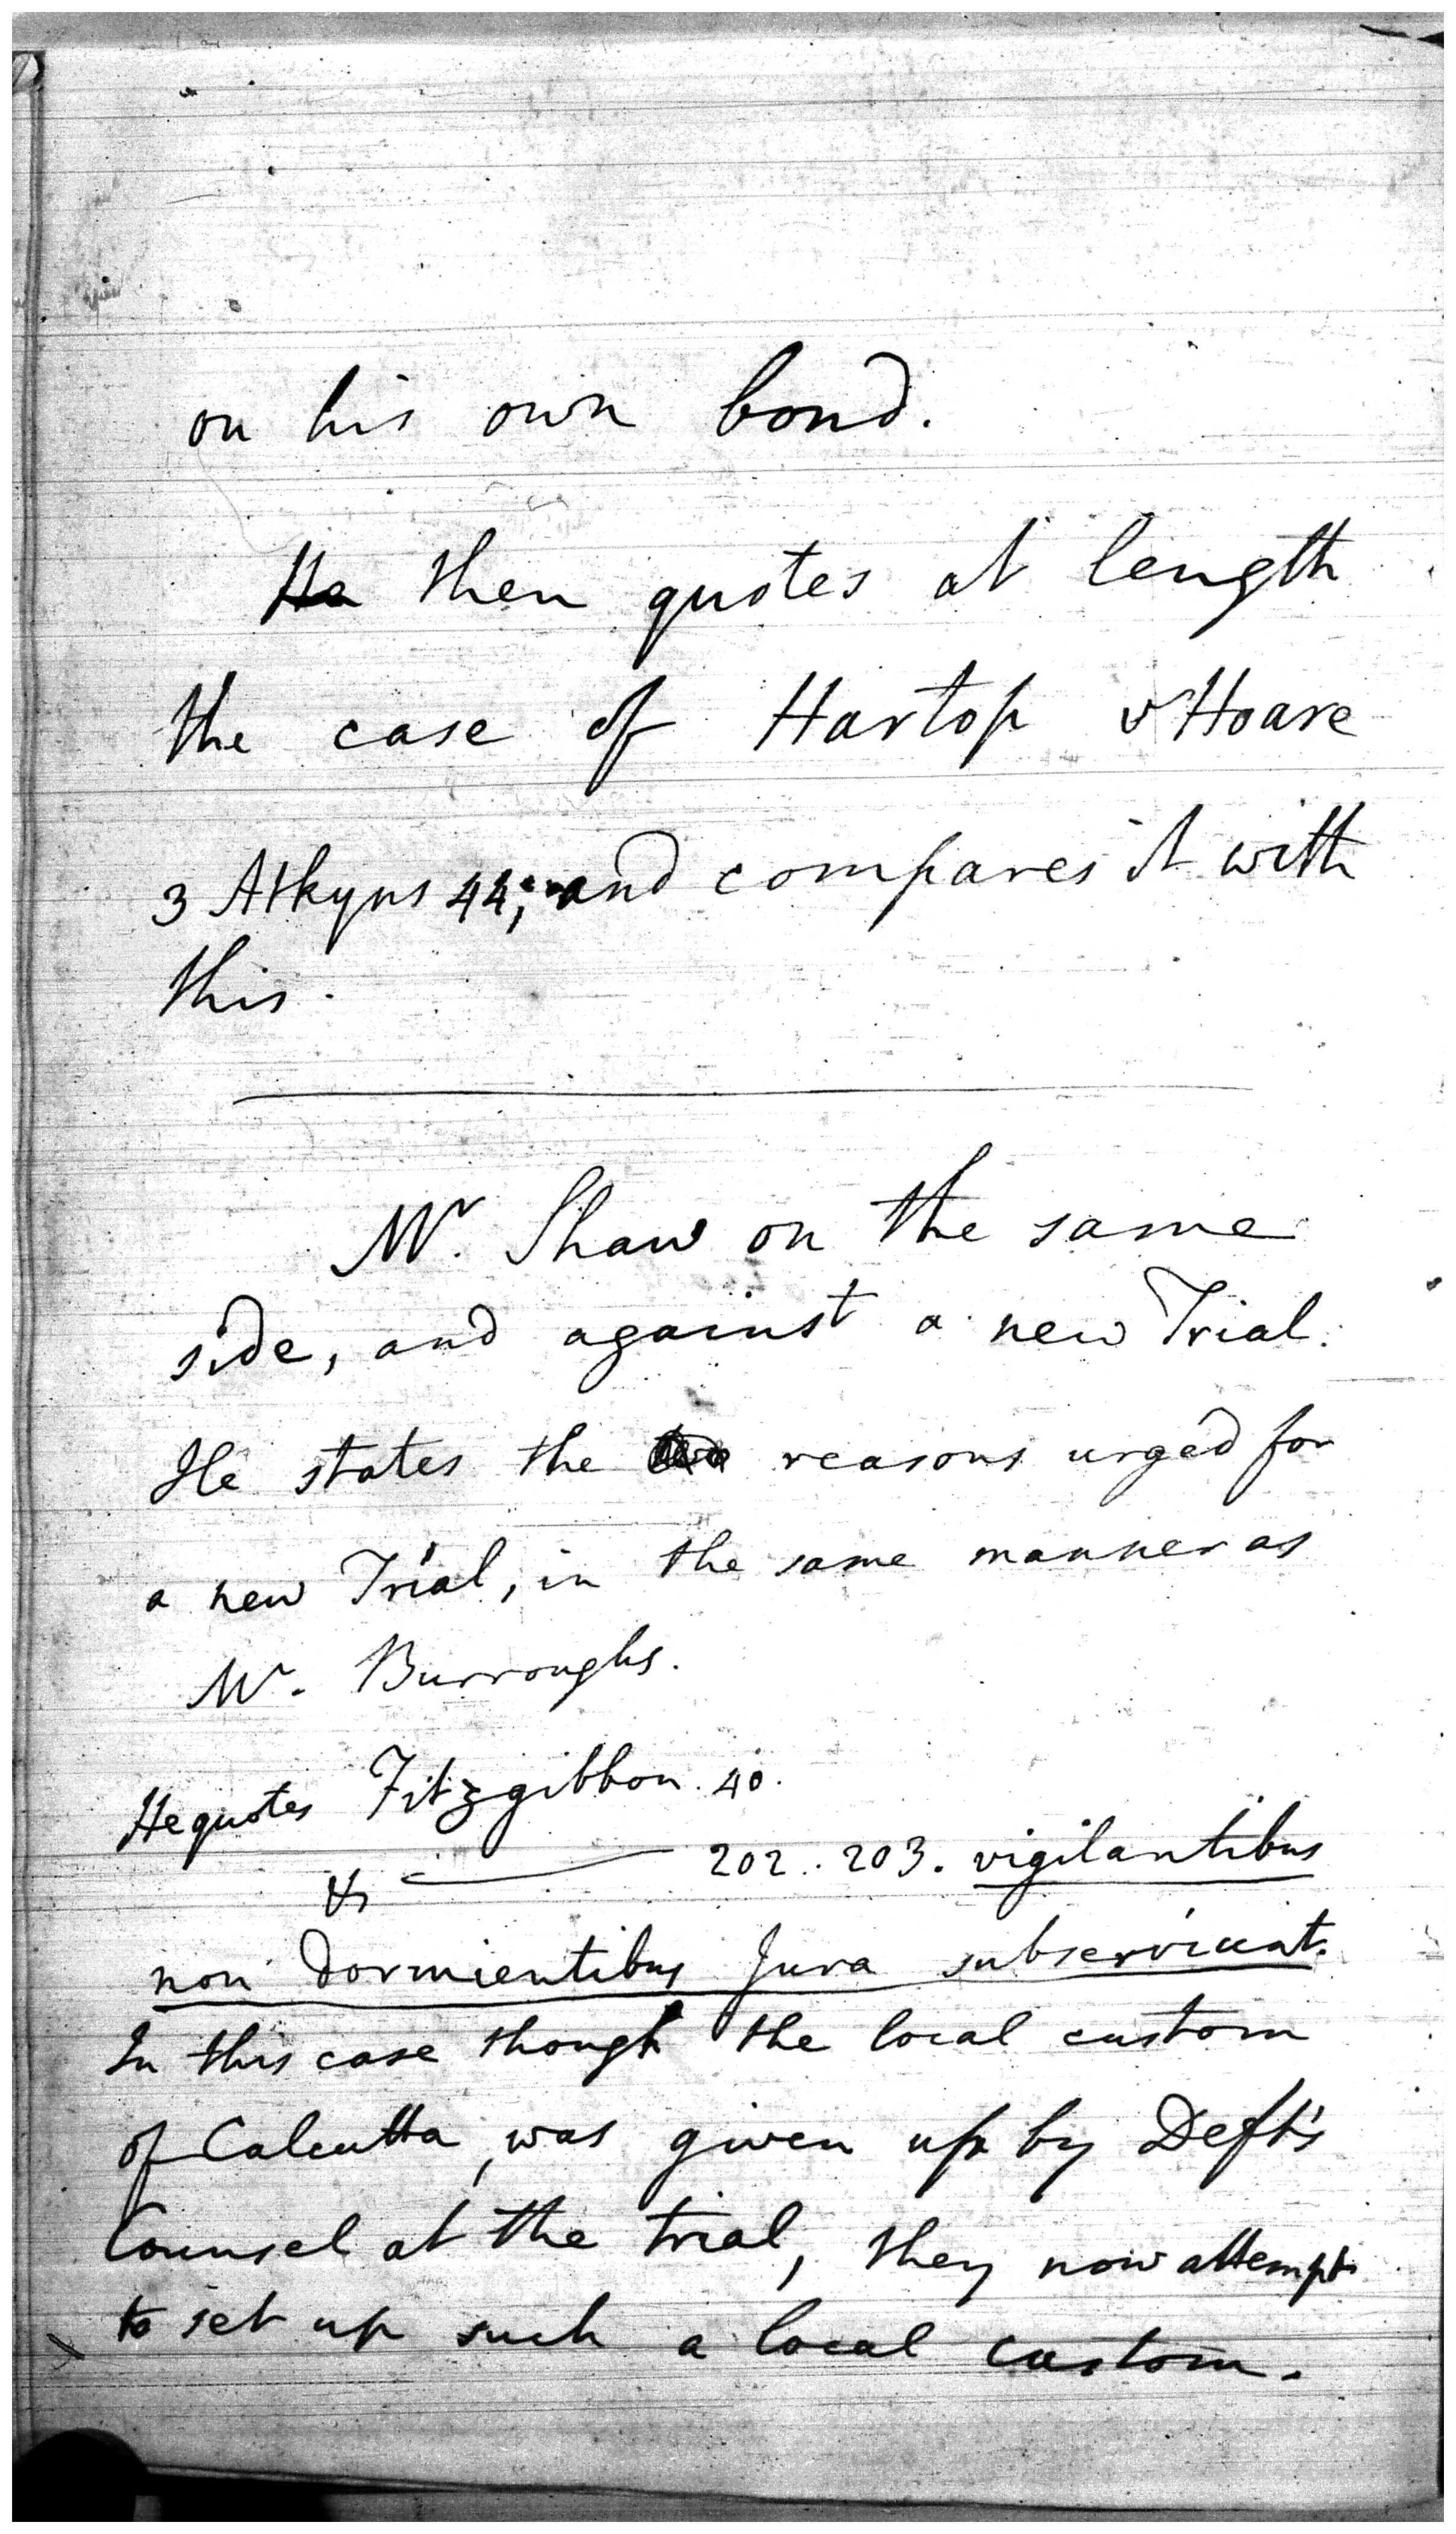 on his own bond.
He then quotes at length
the case of Hartop v Hoare
3 Atkyns 44; and compares it with
this.
Mr. Shaw on the same
side, and against a new Trial.
He states the reasons urged for
a new Trial, in the same manner as
Mr. Burroughs.
He quotes Fitzgibbon. 40.
& 202..203. vigilantibus
non dormientibus Jura subserviunt.
In this case though the local custom
of Calcutta, was given up by Deft's
Counsel at the trial, they now attempt
to set up such a local custom.